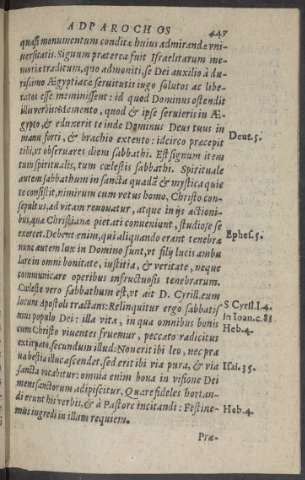 AD PAROCHOS 447
quasi monumentum conditæ huius admirandæ vni-
uersitatis. Signum præterea fuit Israelitarum me-
moriæ traditum, quo admoniti se Dei auxilio à du-
rissimo Ægyptiacæ seruitutis iugo solutos ac libe-
ratos esse meminissent: id quod Dominus ostendit
illis verbis: Memento, quod & ipse seruieris in Æ-
gypto, & eduxerit te inde Dominus Deus tuus in
manu forti, & brachio extento: idcirco præcepit Deut.5.
tibi, vt obseruares diem sabbathi. Est signum item
tum spiritualis, tum cœlestis sabbathi. Spirituale
autem sabbathum in sancta quadã & mystica quie
te consistit, nimirum cum vetus homo, Christo con-
sepultus, ad vitam renouatur, atque in ijs actioni-
bus, quæ Christianæ pietati conueniunt, studiose se
exercet. Debent enim, qui aliquando erant tenebræ Ephes.5.
nunc autem lux in Domino sunt, vt filij lucis ambu
lare in omni bonitate, iustitia, & veritate, neque
communicare operibus infructuosis tenebrarum.
Cæleste vero sabbathum est, vt ait D. Cyrill. eum S Cyrill.l.4.
locum Apostoli tractans: Relinquitur ergo sabbatis in Ioan.c.85.
mus populo Dei: illa vita, in qua omnibus bonis Heb.4.
cum Christo viuentes fruemur, peccato radicitus
extirpato, secundum illud: Non erit ibi leo, nec pra
ua bestia illuc ascendet, sed erit ibi via pura, & via Isai.35.
sancta vocabitur: omnia enim bona in visione Dei
mens sanctorum adipiscitur. Quare fideles hortan-
di erunt his verbis, & à Pastore incitandi: Festine- Heb.4.
mus ingredi in illam requiem.
Præ-